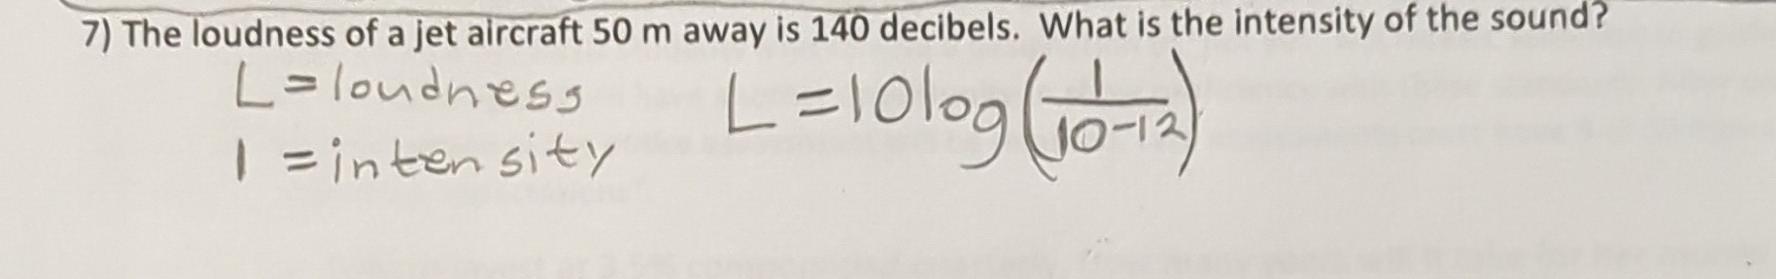 7) The loudness of a jet aircraft 50 m away is 140 decibels. What is the intensity of the sound?
L = loudness L = 10 log (I / 10-12)
I = intensity